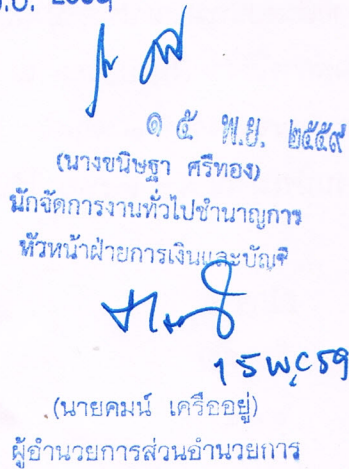 ๑ ๕ พ.ย. ๒๕๕๙
(นางขนิษฐา ศรีทอง)
นักจัดการงานทั่วไปชำนาญการ
หัวหน้าฝ่ายการเงินและบัญชี
15 พย 59
(นายคมน์ เครืออยู่)
ผู้อำนวยการส่วนอำนวยการ